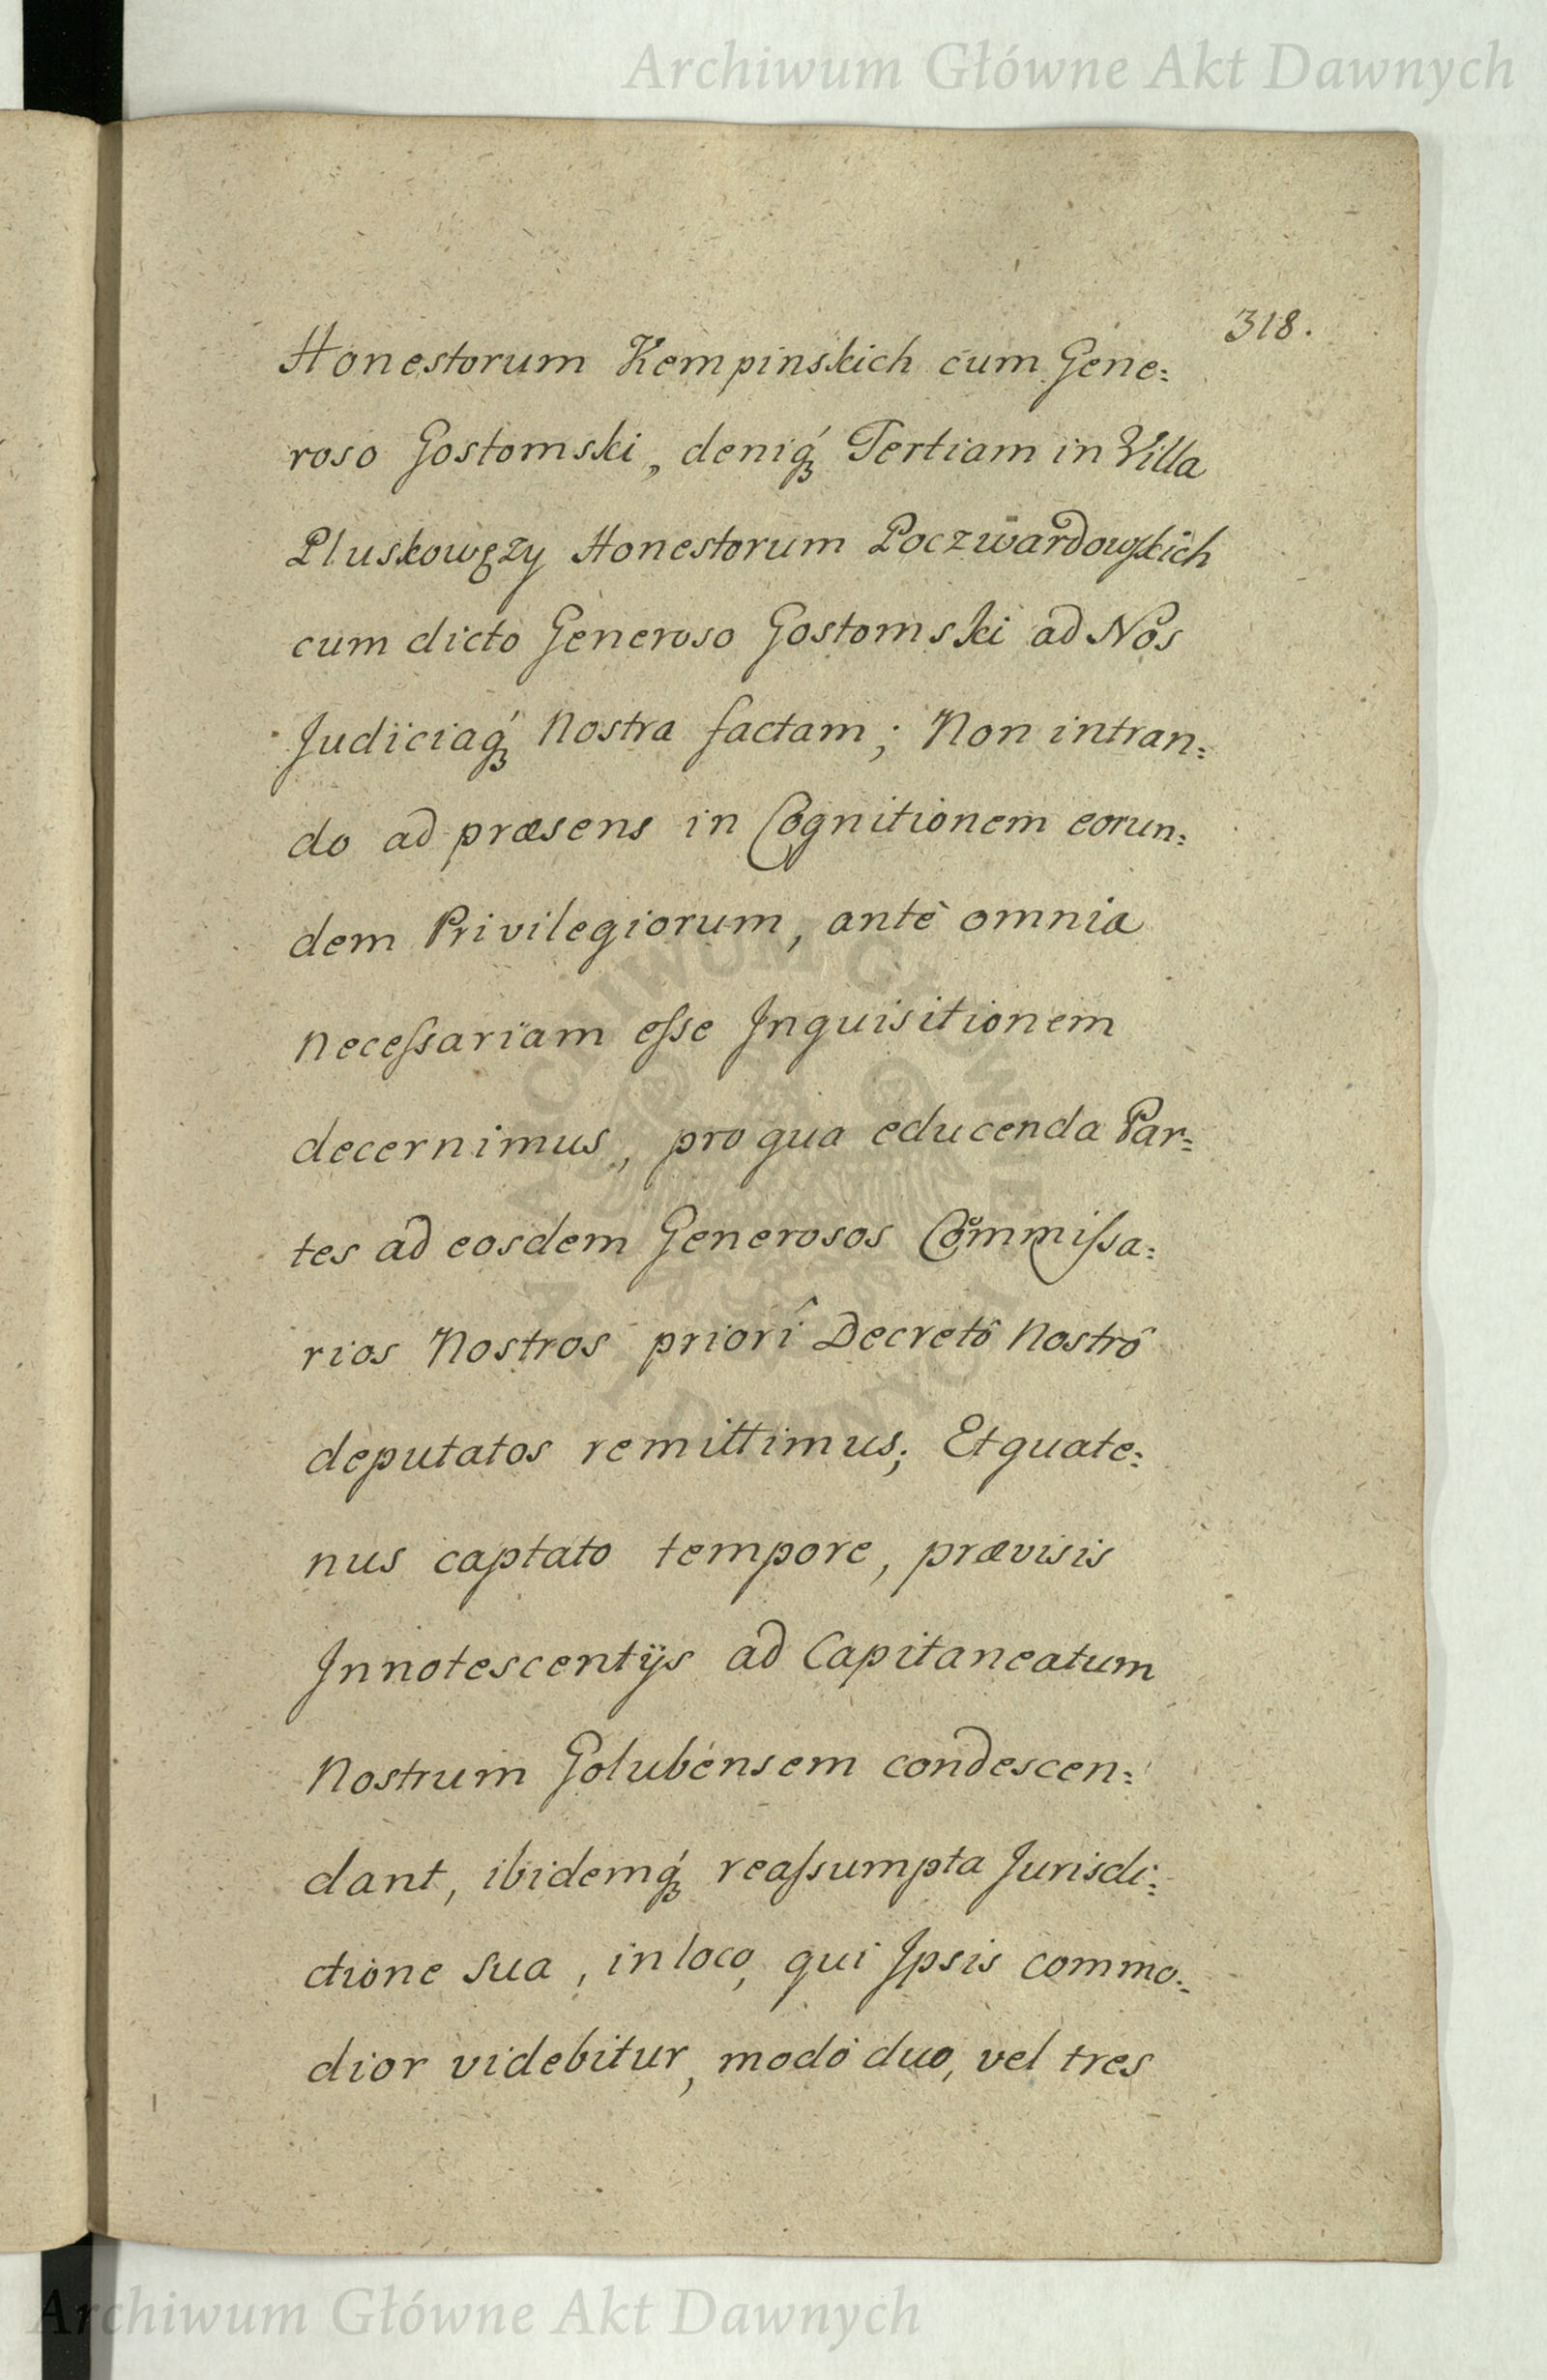 Archiwum Główne Akt Dawnych
318.
Honestorum Kempinskich cum Gene:
roso Gostomski, deniq́ꝫ Tertiam in Villa
Pluskowęzy Honestorum Poczwardowskich
cum dicto Generoso Gostomski ad Nos
Judiciaq́ꝫ Nostra factam; Non intran:
do ad præsens in Cognitionem eorun:
dem Privilegiorum, antè omnia
neceſsariam eſse Inquisitionem
decernimus, pro qua educenda Par:
tes ad eosdem Generosos Commiſsa:
rios Nostros priorî Decretô Nostrô
deputatos remittimus; Et quate:
nus captato tempore, prævisis
Innotescentÿs ad Capitaneatum
Nostrum Golubensem condescen:
dant, ibidemq́ꝫ reaſsumpta Jurisdi:
ctione sua, in loco, qui Ipsis commo:
dior videbitur, modò duo, vel tres
ARCHIWUM GŁÓWNE
AKT DAWNYCH
Archiwum Główne Akt Dawnych